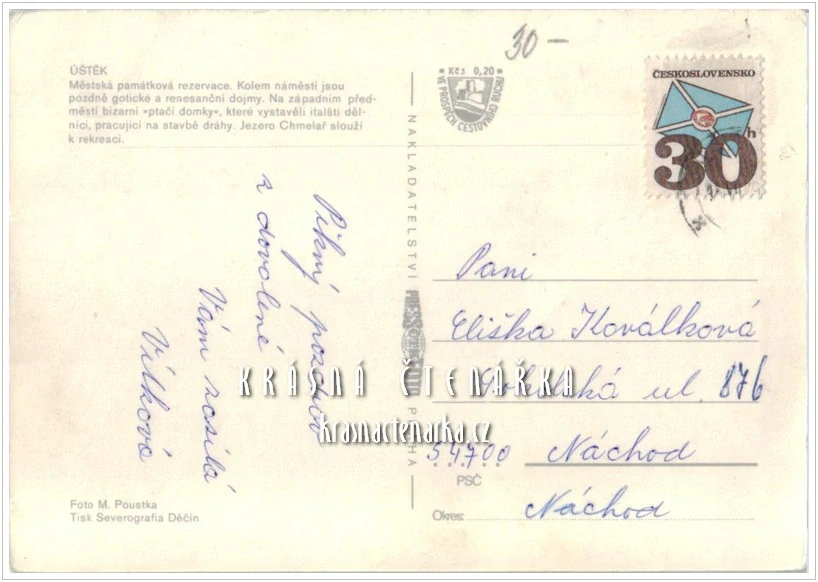 ÚŠTĚK
Městská památková rezervace. Kolem náměstí jsou
pozdně gotické a renesanční dojmy. Na západním před-
městí bizarní »ptačí domky«, které vystavěli italští děl-
níci, pracující na stavbě dráhy. Jezero Chmelař slouží
k rekreaci.
Pěkný pozdrav
z dovolené
Vám zasílá
Vítková
Foto M. Poustka
Tisk Severografia Děčín
NAKLADATELSTVÍ PRAHA
30-
Kčs 0,20
VE PROSPĚCH CESTOVNÍHO RUCHU
ČESKOSLOVENSKO
30h
Paní
Eliška Koválková
ul. 876
54700 Náchod
PSČ
Okres: Náchod
KRÁSNÁ ČTENÁŘKA
krasnactenarka.cz